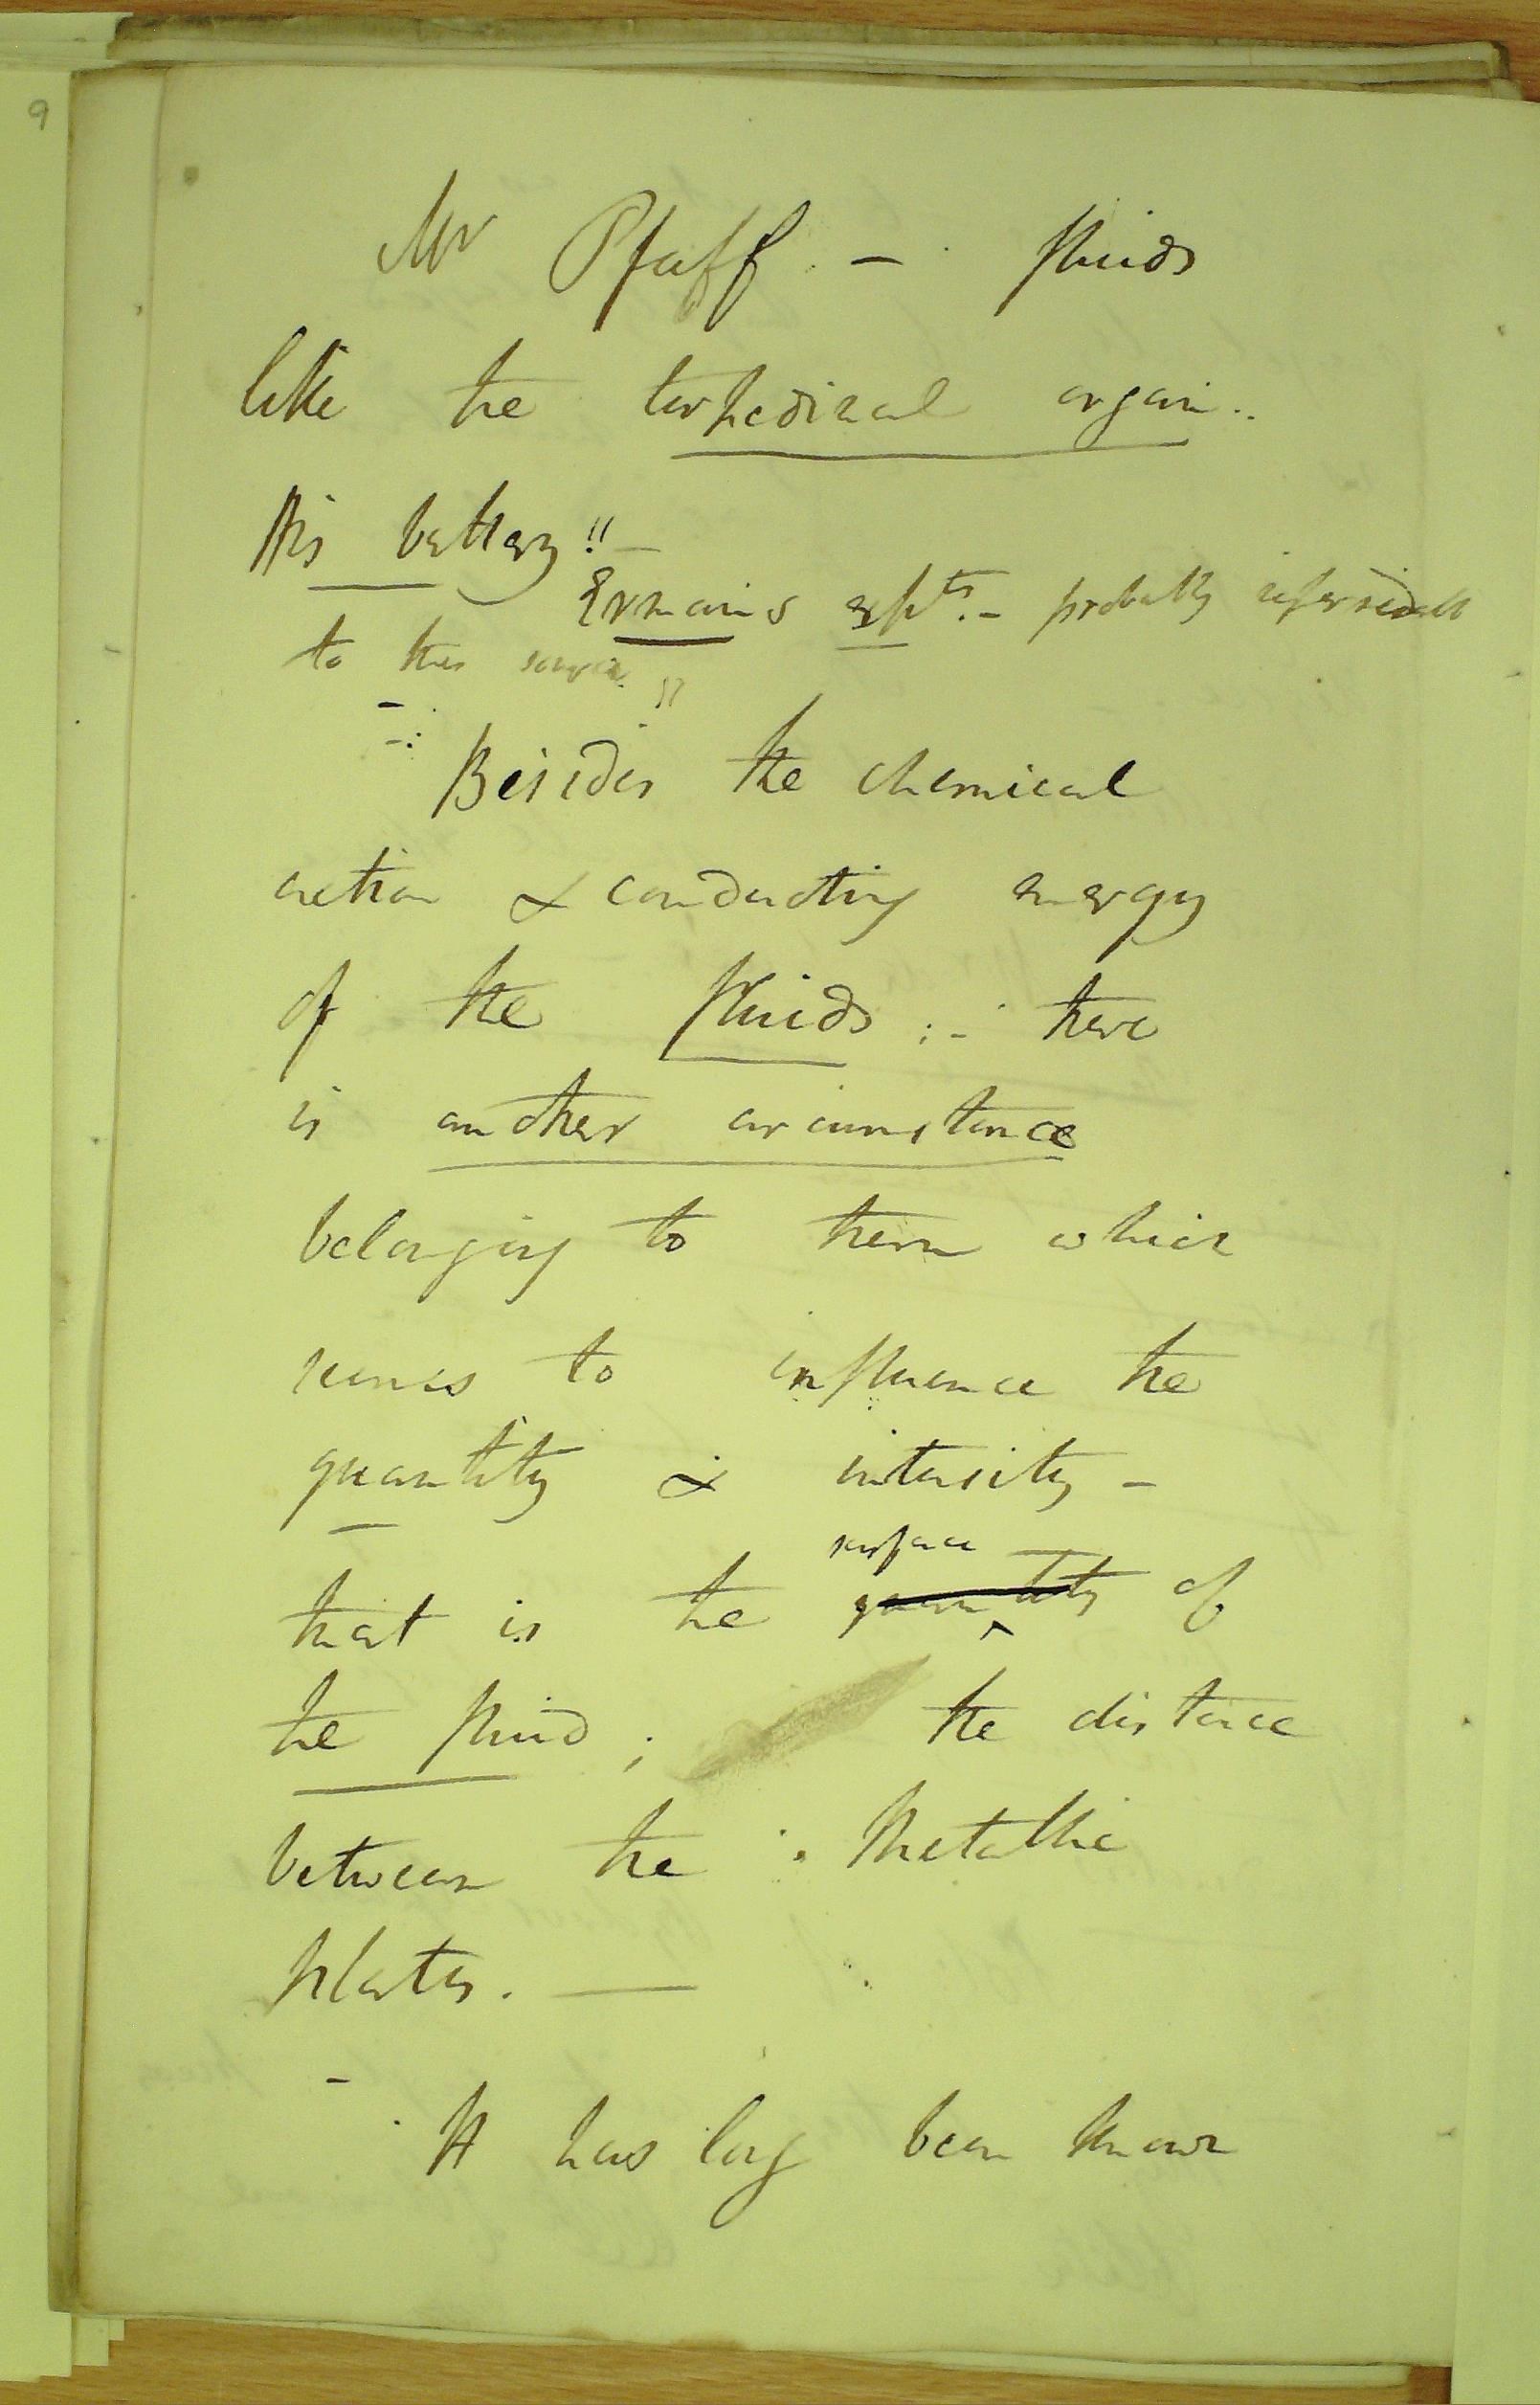 9
Mr Pfaff. - fluids
like the torpedinal organ..
His battery!! -
Ermans expts. - probably
to this source!!
Besides the chemical
action & conducting energy
of the fluids; - there
is another circumstance
belonging to them which
seems to influence the
quantity & intensity -
surface
that is the quantity of
the fluid; the distance
between the Metallic
plates. —
It has long been known